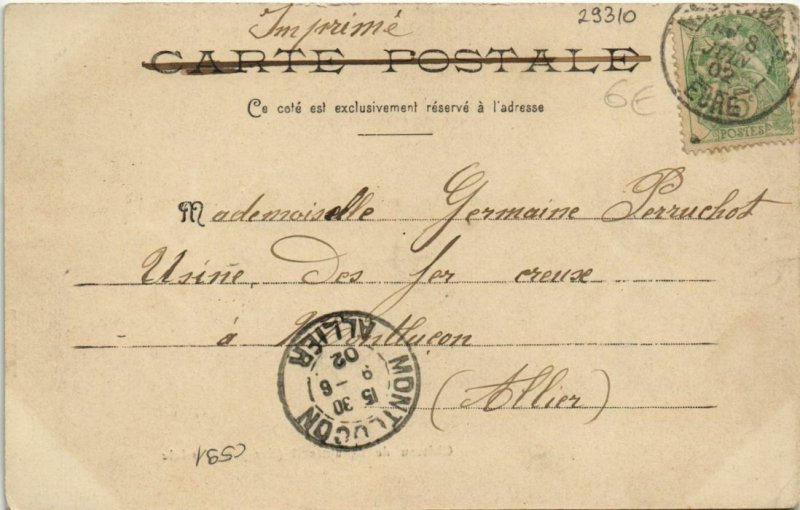 Imprimé
29310
CARTE POSTALE
Ce coté est exclusivement réservé à l'adresse
6E
8
JUIN
02
EURE
POSTES
Mademoiselle Germaine Perruchot
Usine, des fer creuse
à Montluçon
(Allier)
MONTLUÇON
15 30
9 -6
02
ALLIER
C591